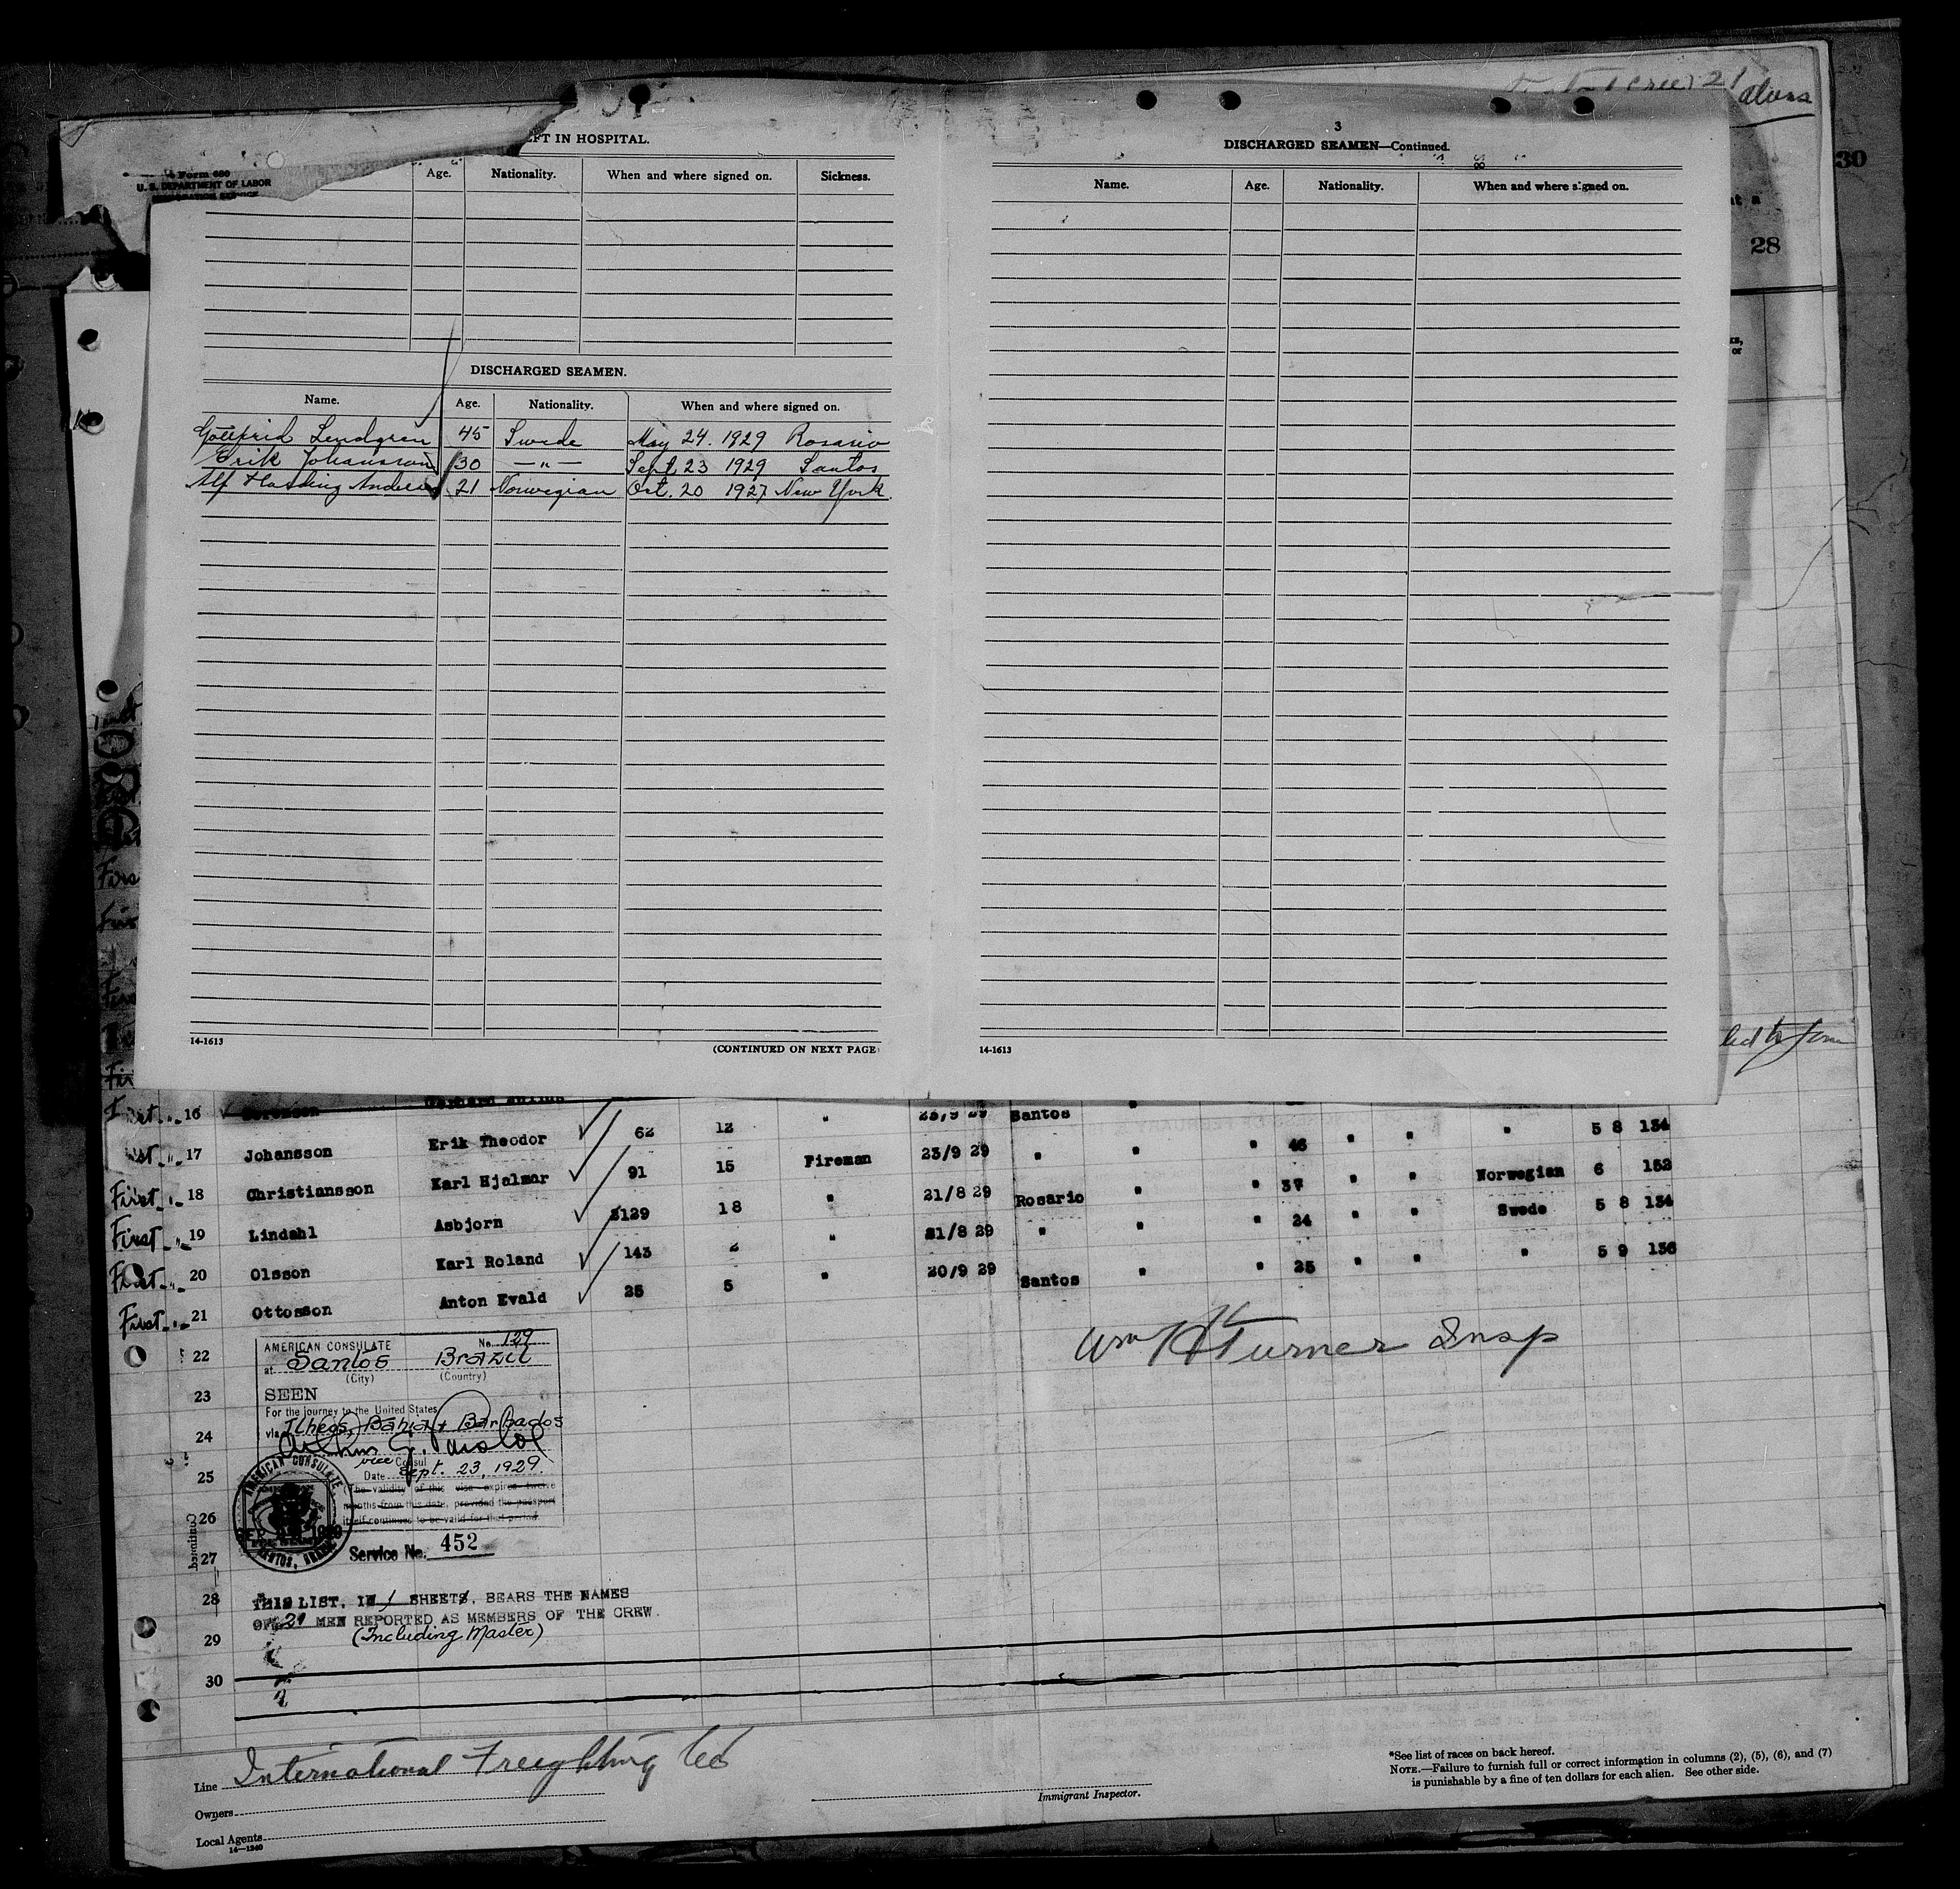 aliens
30
28
Form 680
U. S. DEPARTMENT OF LABOR
IMMIGRATION SERVICE
LEFT IN HOSPITAL.
Age. Nationality. When and where signed on. Sickness.
DISCHARGED SEAMEN.
Name. Age. Nationality. When and where signed on.
Gottfrid Lendgren 45 Swede May 24. 1929 Rosario
Erik Johansson 30 —"— Sept 23 1929 Santos
Alf Harding 21 Norwegian Oct. 20 1927 New York
14-1613
(CONTINUED ON NEXT PAGE
3
DISCHARGED SEAMEN—Continued.
Name. Age. Nationality. When and where signed on.
14-1613
First " 16 23/9 29 Santos "
" 17 Johansson Erik Theodor 62 12 " 23/9 29 " " " 46 " " " 5 8 134
First " 18 Christiansson Karl Hjalmar 91 15 Fireman 21/8 29 Rosario " " 37 " " Norwegian 6 152
First " 19 Lindahl Asbjorn 2129 18 " 21/8 29 " " " 24 " " Swede 5 8 134
First " 20 Olsson Karl Roland 143 2 " 20/9 29 Santos " " 25 " " " 5 9 136
First " 21 Ottosson Anton Evald 25 5 "
22
23
24
25
26
27
28
29
30
AMERICAN CONSULATE No. 129
at Santos Brazil
(City) (Country)
SEEN
For the journey to the United States
via Ilheos, Bahia & Barbados
vice Consul
Date Sept. 23, 1929.
(The validity of this visa expires twelve
months from this date, provided the passport
itself continues to be valid for that period.
AMERICAN CONSULATE
SANTOS, BRAZIL
Service No. 452
Continued
Wm H Turner Insp
THIS LIST, IN 1 SHEETS, BEARS THE NAMES
OF 21 MEN REPORTED AS MEMBERS OF THE CREW.
(Including Master)
Line International Freighting Co
Owners
Local Agents
14—1240
Immigrant Inspector.
*See list of races on back hereof.
NOTE.—Failure to furnish full or correct information in columns (2), (5), (6), and (7)
is punishable by a fine of ten dollars for each alien. See other side.